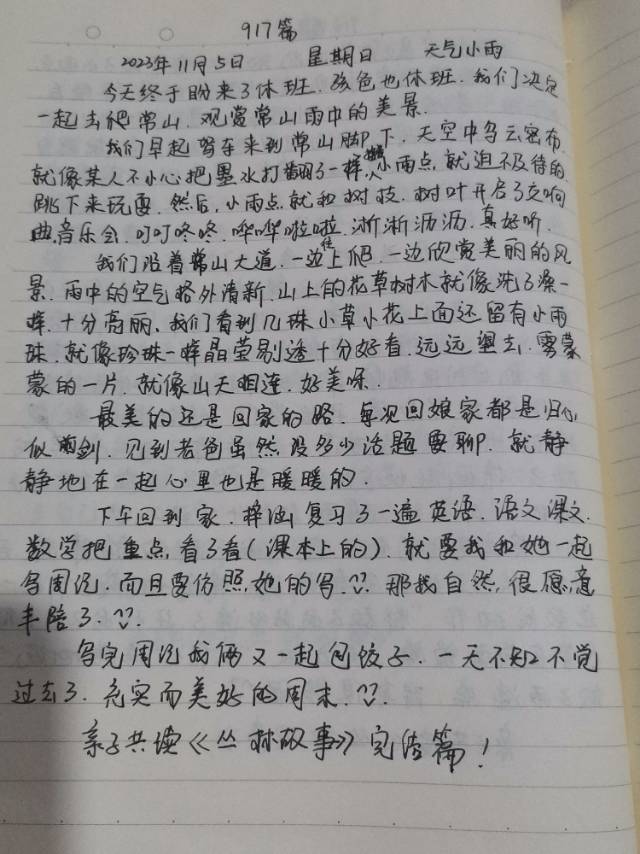 917篇
2023年11月5日 星期日 天气小雨
今天终于盼来了休班.孩爸也休班.我们决定
一起去爬常山.观赏常山雨中的美景.
我们早起驾车来到常山脚下.天空中乌云密布
就像某人不小心把墨水打翻了一样.小雨点.就迫不及待的
跳下来玩耍.然后.小雨点就和树枝.树叶开启了交响
曲音乐会.叮叮咚咚.哗哗啦啦.淅淅沥沥.真好听.
我们沿着常山大道.一边往上爬.一边欣赏美丽的风
景.雨中的空气格外清新.山上的花草树木就像洗了澡一
样.十分亮丽.我们看到几珠小草小花上面还留有小雨
珠.就像珍珠一样晶莹剔透十分好看.远远望去.雾蒙
蒙的一片.就像山天相连.好美呀.
最美的还是回家的路.每次回娘家都是归心
似箭.见到老爸虽然没多少话题要聊.就静
静地在一起心里也是暖暖的.
下午回到家.梓涵复习了一遍英语.语文课文.
数学把重点.看了看(课本上的).就要我和她一起
写周记.而且要仿照她的写.那我自然.很愿意
奉陪了.
写完周记我俩又一起包饺子.一天不知不觉
过去了.充实而美好的周末.
亲子共读《丛林故事》完结篇!